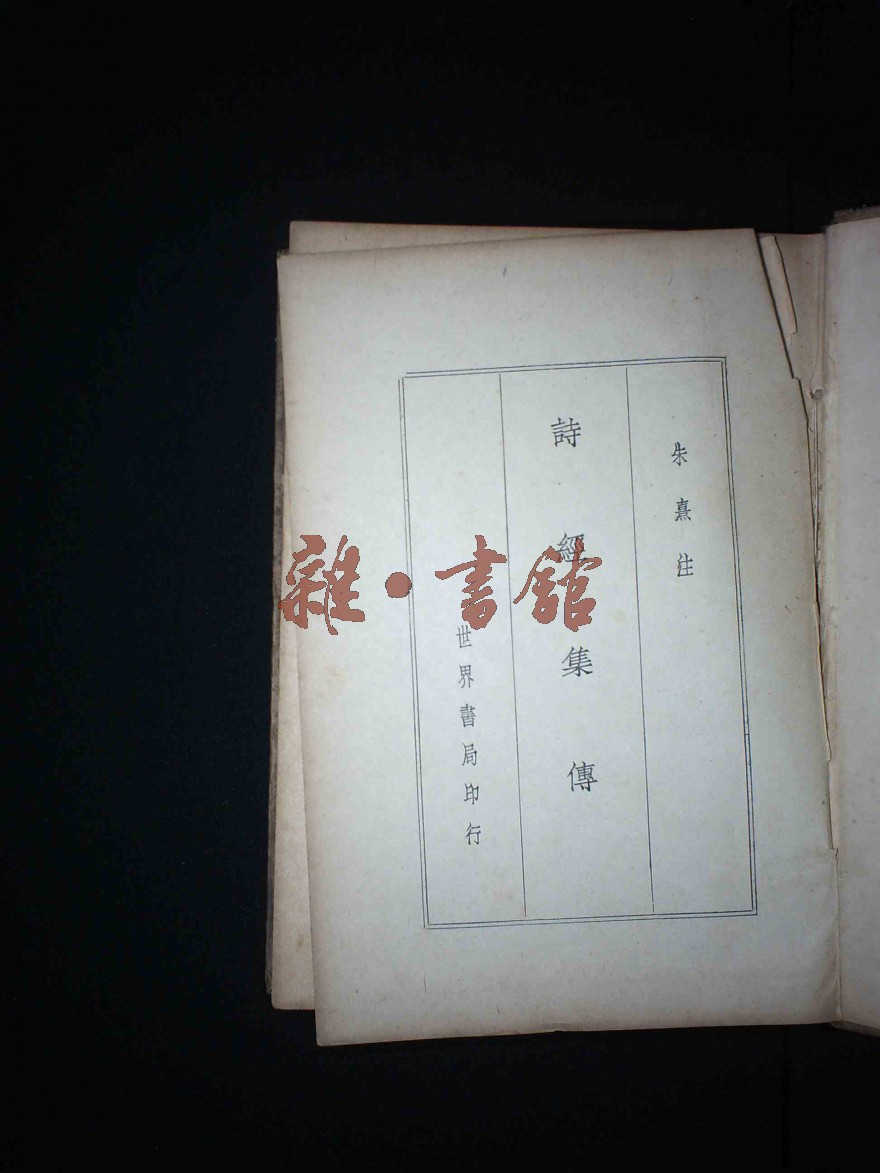 朱熹注
詩經集傳
世界書局印行
雜·書館